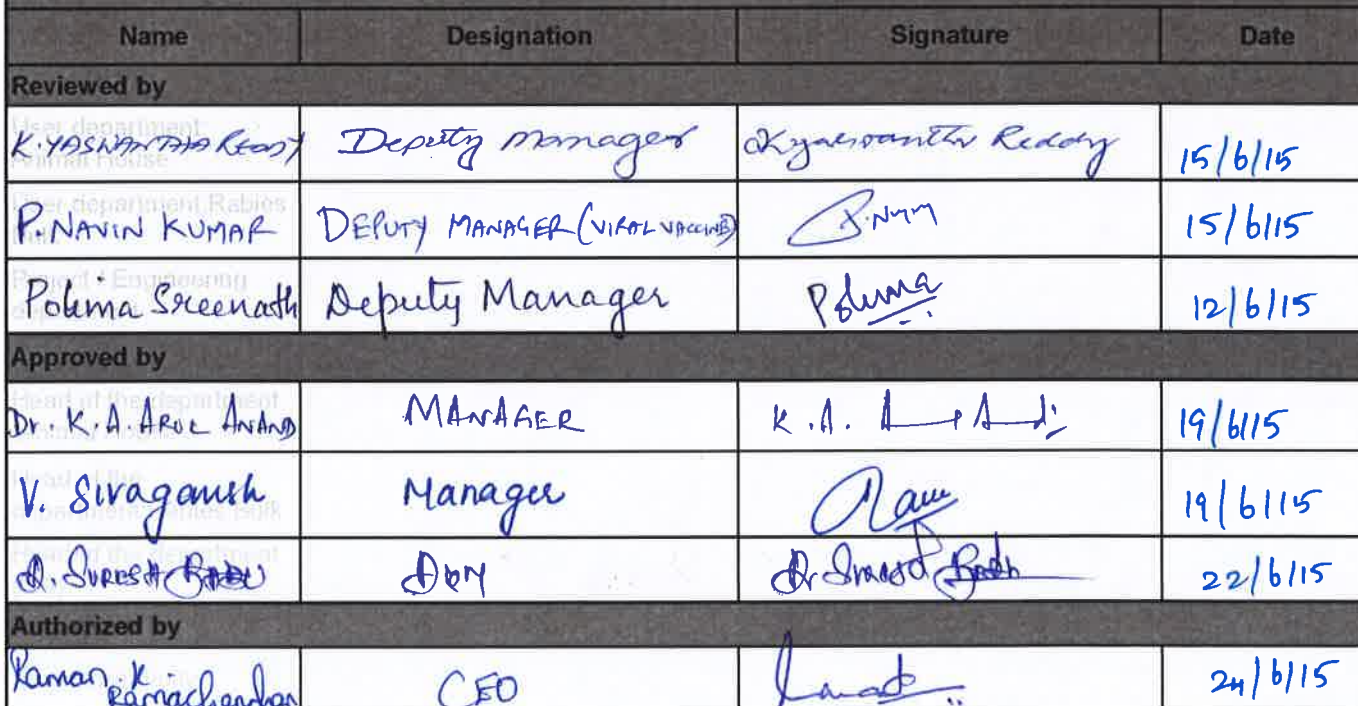 Name Designation Signature Date
Reviewed by
User department
Animal House
K. YASHWANTHA REDDY Deputy Manager Kyashwanth Reddy 15/6/15
User department Rabies
P. NAVIN KUMAR DEPUTY MANAGER (VIRAL VACCINE) 15/6/15
Project / Engineering
Polima Sreenath Deputy Manager Polima 12/6/15
Approved by
Head of the department
Dr. K. A. AROL ANAND MANAGER K. A. 19/6/15
Head of the
department Rabies Bulk
V. Sivaganesh Manager 19/6/15
Head of the department
D. SURESH BABU DGM D. Suresh Babu 22/6/15
Authorized by
Raman. K. CEO 24/6/15
Ramachandran